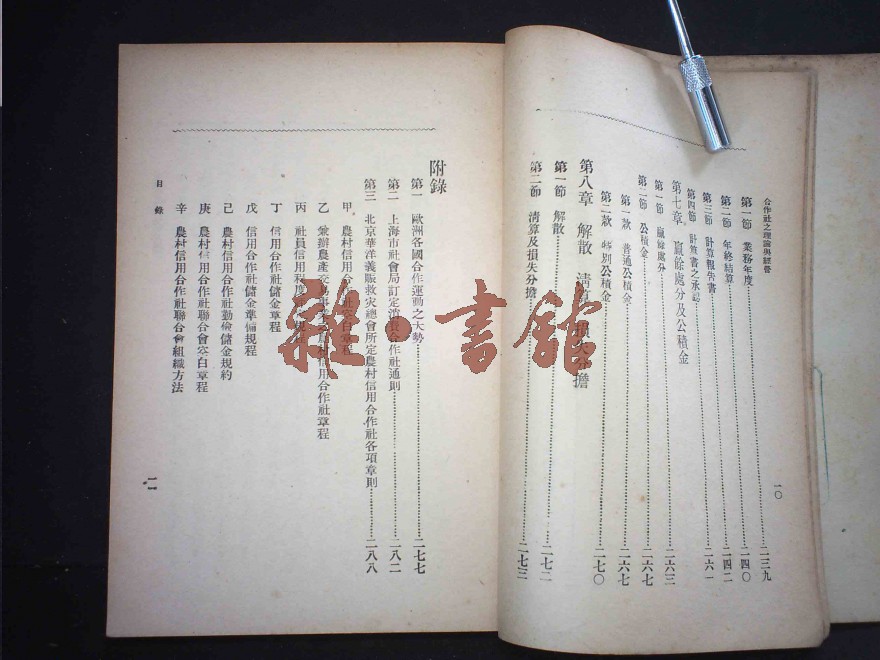 合作社之理論與經營
第一節 業務年度 二三九
第二節 年終結算 二四〇
第三節 計算報告書 二四二
第四節 計算書之承認 二六一
第七章 贏餘處分及公積金
第一節 贏餘處分 二六三
第二節 公積金 二六七
第一款 普通公積金 二六七
第二款 特別公積金 二七〇
第八章 解散 清算 損失分擔
第一節 解散 二七二
第二節 清算及損失分擔 二七三
一〇
附錄
第一 歐洲各國合作運動之大勢 二七七
第二 上海市社會局訂定消費合作社通則 二八二
第三 北京華洋義賑救灾總會所定農村信用合作社各項章則 二八八
甲 農村信用合作社空白章程
乙 兼辦農產交易事業之農村信用合作社章程
丙 社員信用程度
丁 信用合作社儲金章程
戊 信用合作社儲金準備規程
己 農村信用合作社勤儉儲金規約
庚 農村信用合作社聯合會空白章程
辛 農村信用合作社聯合會組織方法
目錄
一一
雜·書館